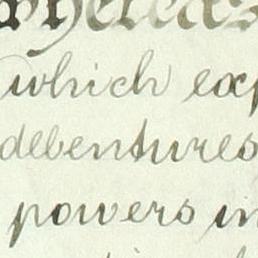 whereas
which exp
debentures
powers in